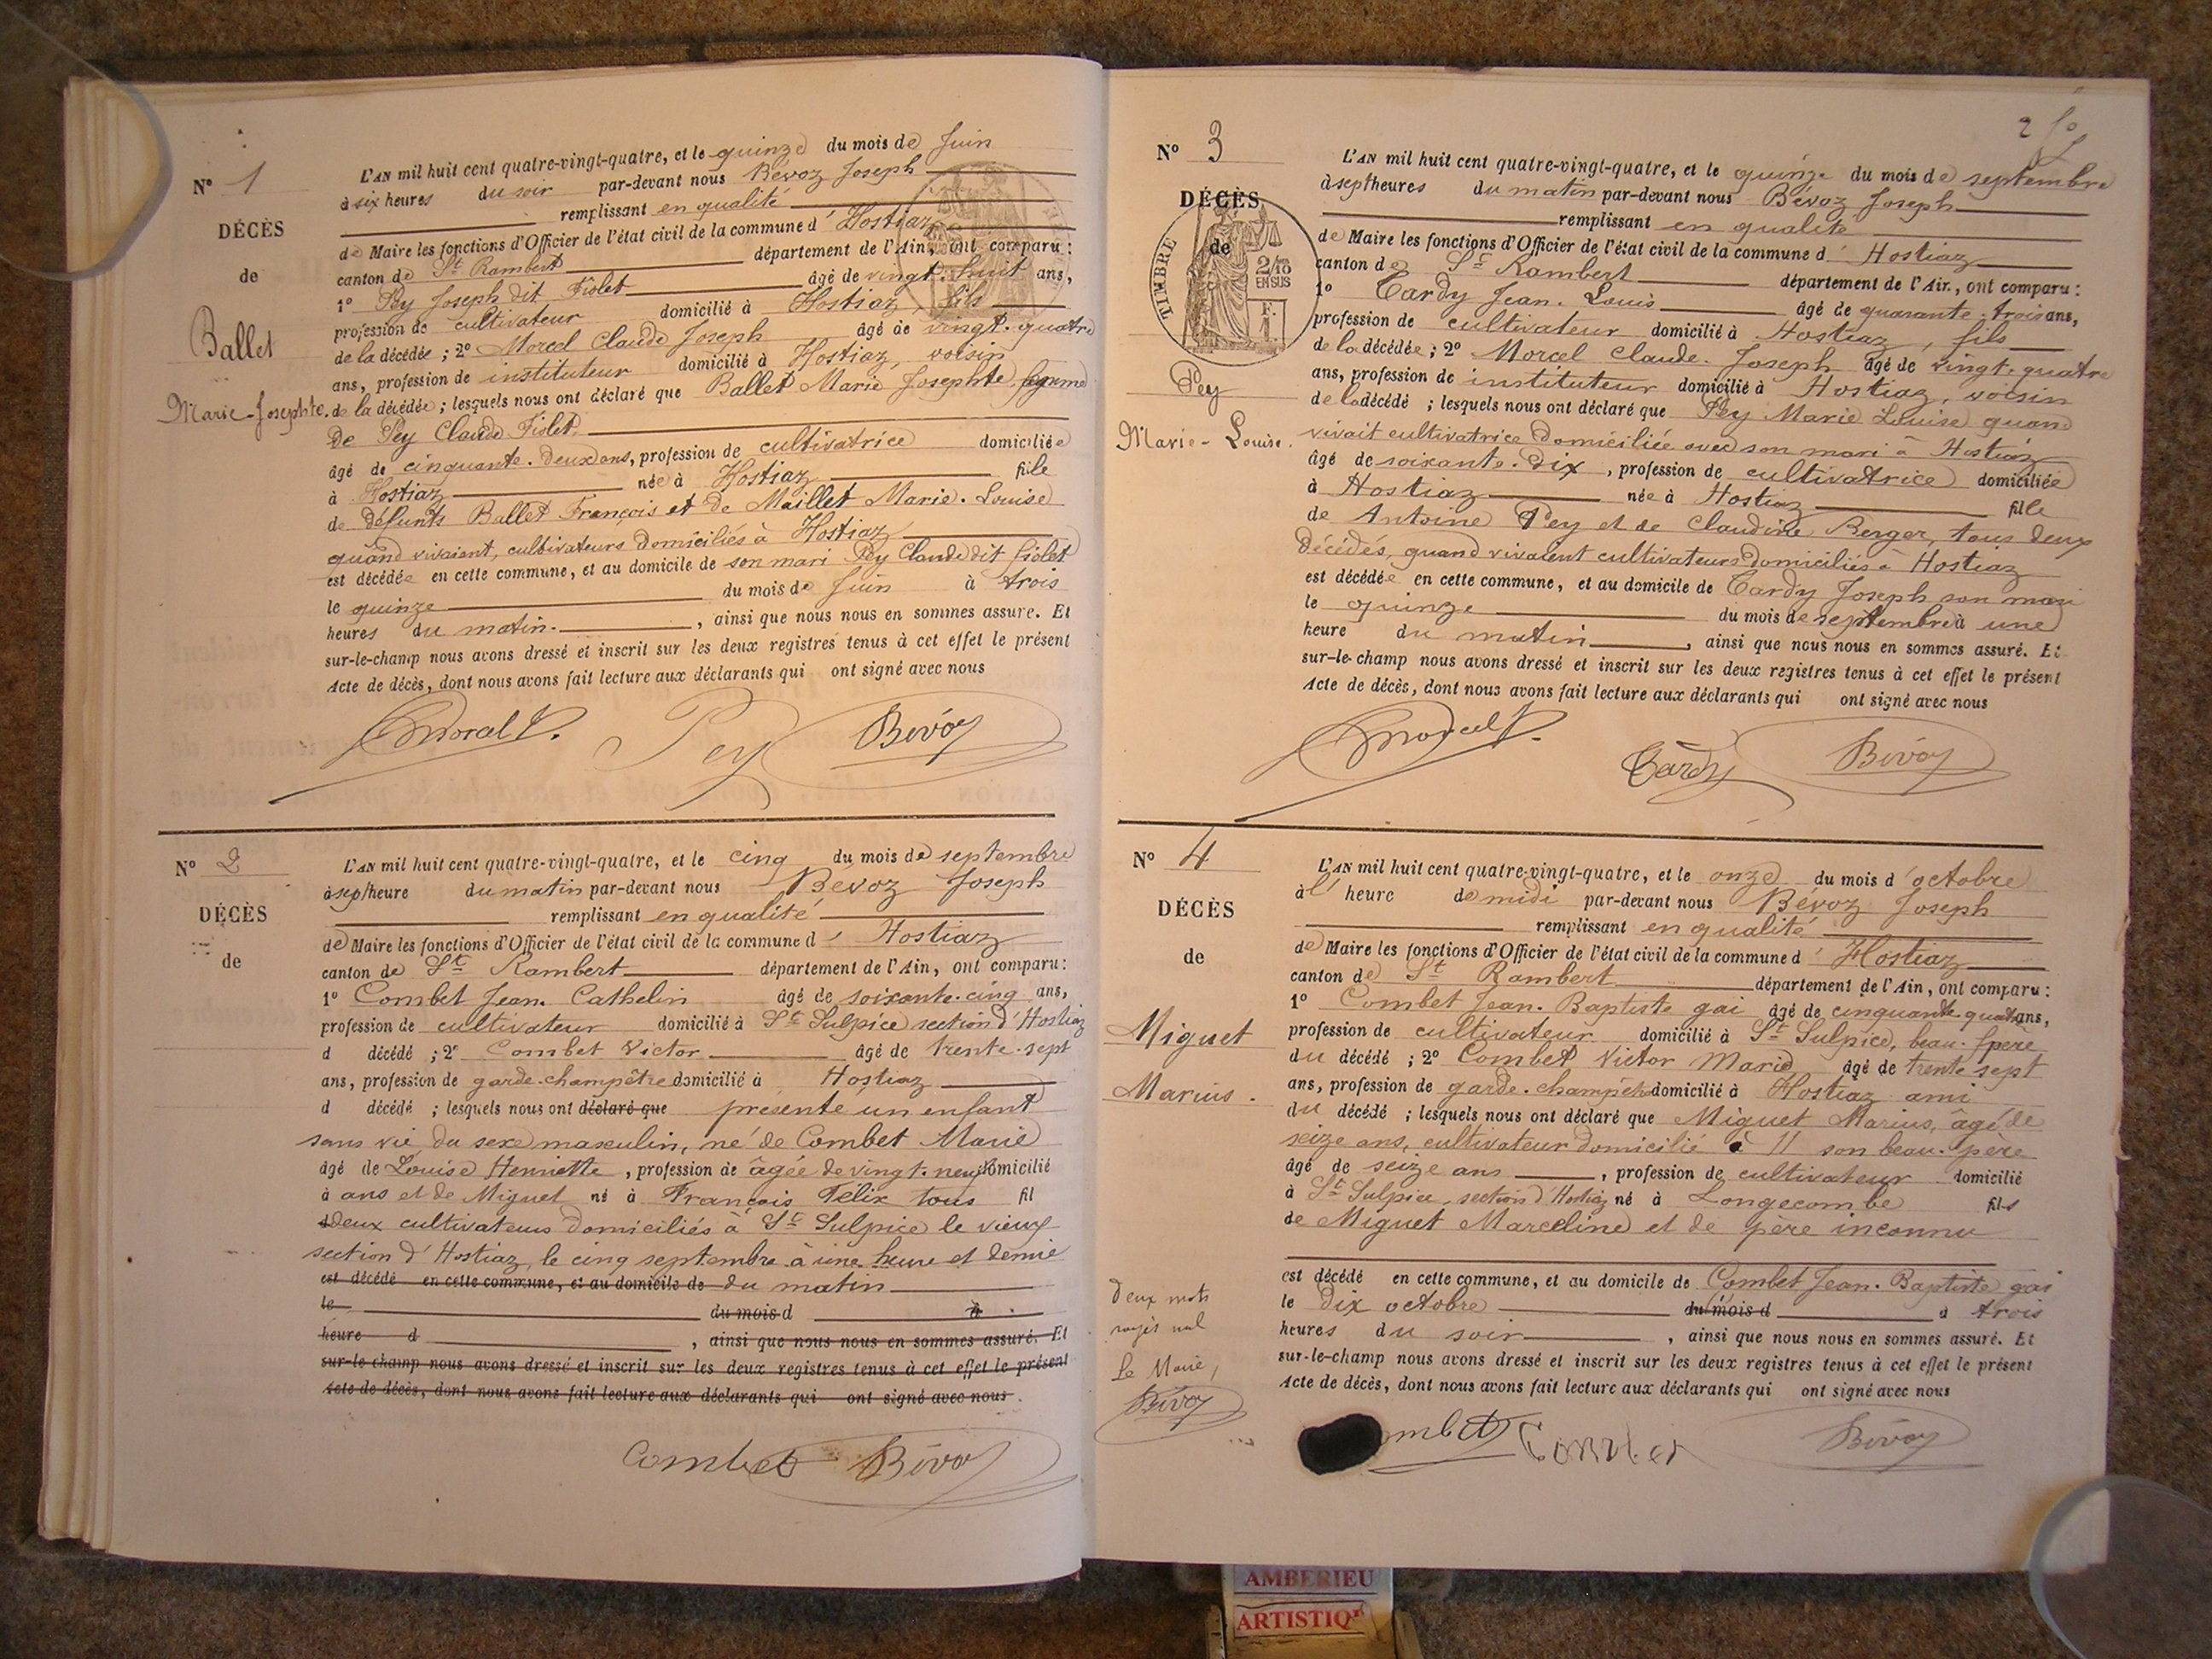 N° 1
DÉCÈS
de
Ballet
Marie-Josephte.
L'AN mil huit cent quatre-vingt-quatre, et le quinze du mois de Juin
à six heures du soir par-devant nous Bévoz Joseph
remplissant en qualité
de Maire les fonctions d'Officier de l'état civil de la commune d' Hostiaz
canton de St Rambert département de l'Ain, ont comparu :
1° Pey Joseph dit Fiolet âgé de vingt-huit ans,
profession de cultivateur domicilié à Hostiaz, fils
de la décédée ; 2° Morcel Claude Joseph âgé de vingt-quatre
ans, profession de instituteur domicilié à Hostiaz, voisin
de la décédée ; lesquels nous ont déclaré que Ballet Marie Josephte femme
de Pey Claude Fiolet.
âgé de cinquante-deux ans, profession de cultivatrice domiciliée
à Hostiaz née à Hostiaz fille
de défunts Ballet François et de Maillet Marie-Louise
quand vivaient, cultivateurs domiciliés à Hostiaz
est décédée en cette commune, et au domicile de son mari Pey Claude dit fiolet
le quinze du mois de Juin à trois
heures du matin. , ainsi que nous nous en sommes assuré. Et
sur-le-champ nous avons dressé et inscrit sur les deux registres tenus à cet effet le présent
Acte de décès, dont nous avons fait lecture aux déclarants qui ont signé avec nous
Pey Bévoz
N° 2
DÉCÈS
de
L'AN mil huit cent quatre-vingt-quatre, et le cinq du mois de septembre
à sept heure du matin par-devant nous Bévoz Joseph
remplissant en qualité
de Maire les fonctions d'Officier de l'état civil de la commune d' Hostiaz
canton de St Rambert département de l'Ain, ont comparu :
1° Combet Jean Cathelin âgé de soixante-cinq ans,
profession de cultivateur domicilié à St Sulpice section d'Hostiaz
d décédé ; 2° Combet Victor âgé de trente-sept
ans, profession de garde-champêtre domicilié à Hostiaz
d décédé ; lesquels nous ont déclaré que présenté un enfant
sans vie du sexe masculin, né de Combet Marie
âgé de Louise Henriette, profession de âgée de vingt-neuf domicilié
à ans et de Miguet né à François Félix tous fil
deux cultivateurs domiciliés à St Sulpice le vieux
section d'Hostiaz, le cinq septembre à une heure et demie
est décédé en cette commune, et au domicile de du matin
le du mois d à
heure d , ainsi que nous nous en sommes assuré. Et
sur-le-champ nous avons dressé et inscrit sur les deux registres tenus à cet effet le présent
Acte de décès, dont nous avons fait lecture aux déclarants qui ont signé avec nous.
Combet Bévoz
N° 3
DÉCÈS
de
TIMBRE
2/10
EN SUS
F.
Pey
Marie-Louise.
L'AN mil huit cent quatre-vingt-quatre, et le quinze du mois de septembre
à sept heures du matin par-devant nous Bévoz Joseph
remplissant en qualité
de Maire les fonctions d'Officier de l'état civil de la commune d' Hostiaz
canton de St Rambert département de l'Ain, ont comparu :
1° Tardy Jean-Louis âgé de quarante-trois ans,
profession de cultivateur domicilié à Hostiaz, fils
de la décédée ; 2° Morcel Claude-Joseph âgé de vingt-quatre
ans, profession de instituteur domicilié à Hostiaz, voisin
de la décédé ; lesquels nous ont déclaré que Pey Marie Louise quand
vivait cultivatrice domiciliée avec son mari à Hostiaz
âgé de soixante-dix, profession de cultivatrice domiciliée
à Hostiaz née à Hostiaz fille
de Antoine Pey et de Claudine Berger, tous deux
décédés, quand vivaient cultivateurs domiciliés à Hostiaz
est décédée en cette commune, et au domicile de Tardy Joseph son mari
le quinze du mois de septembre à une
heure du matin , ainsi que nous nous en sommes assuré. Et
sur-le-champ nous avons dressé et inscrit sur les deux registres tenus à cet effet le présent
Acte de décès, dont nous avons fait lecture aux déclarants qui ont signé avec nous
Tardy Bévoz
N° 4
DÉCÈS
de
Miguet
Marius.
L'AN mil huit cent quatre-vingt-quatre, et le onze du mois d'octobre
à l'heure de midi par-devant nous Bévoz Joseph
remplissant en qualité
de Maire les fonctions d'Officier de l'état civil de la commune d' Hostiaz
canton de St Rambert département de l'Ain, ont comparu :
1° Combet Jean-Baptiste gai âgé de cinquante-quatre ans,
profession de cultivateur domicilié à St Sulpice, beau-père
du décédé ; 2° Combet Victor Marie âgé de trente sept
ans, profession de garde-champêtre domicilié à Hostiaz ami
du décédé ; lesquels nous ont déclaré que Miguet Marius, âgé de
seize ans, cultivateur domicilié à son beau-père
âgé de seize ans , profession de cultivateur domicilié
à St Sulpice, section d'Hostiaz né à Longecombe fils
de Miguet Marceline et de père inconnu
est décédé en cette commune, et au domicile de Combet Jean-Baptiste gai
le dix octobre du mois d à trois
heures du soir , ainsi que nous nous en sommes assuré. Et
sur-le-champ nous avons dressé et inscrit sur les deux registres tenus à cet effet le présent
Acte de décès, dont nous avons fait lecture aux déclarants qui ont signé avec nous
Deux mots
rayés nul
Le Maire,
Bévoz
Bévoz
AMBERIEU
ARTISTIQ